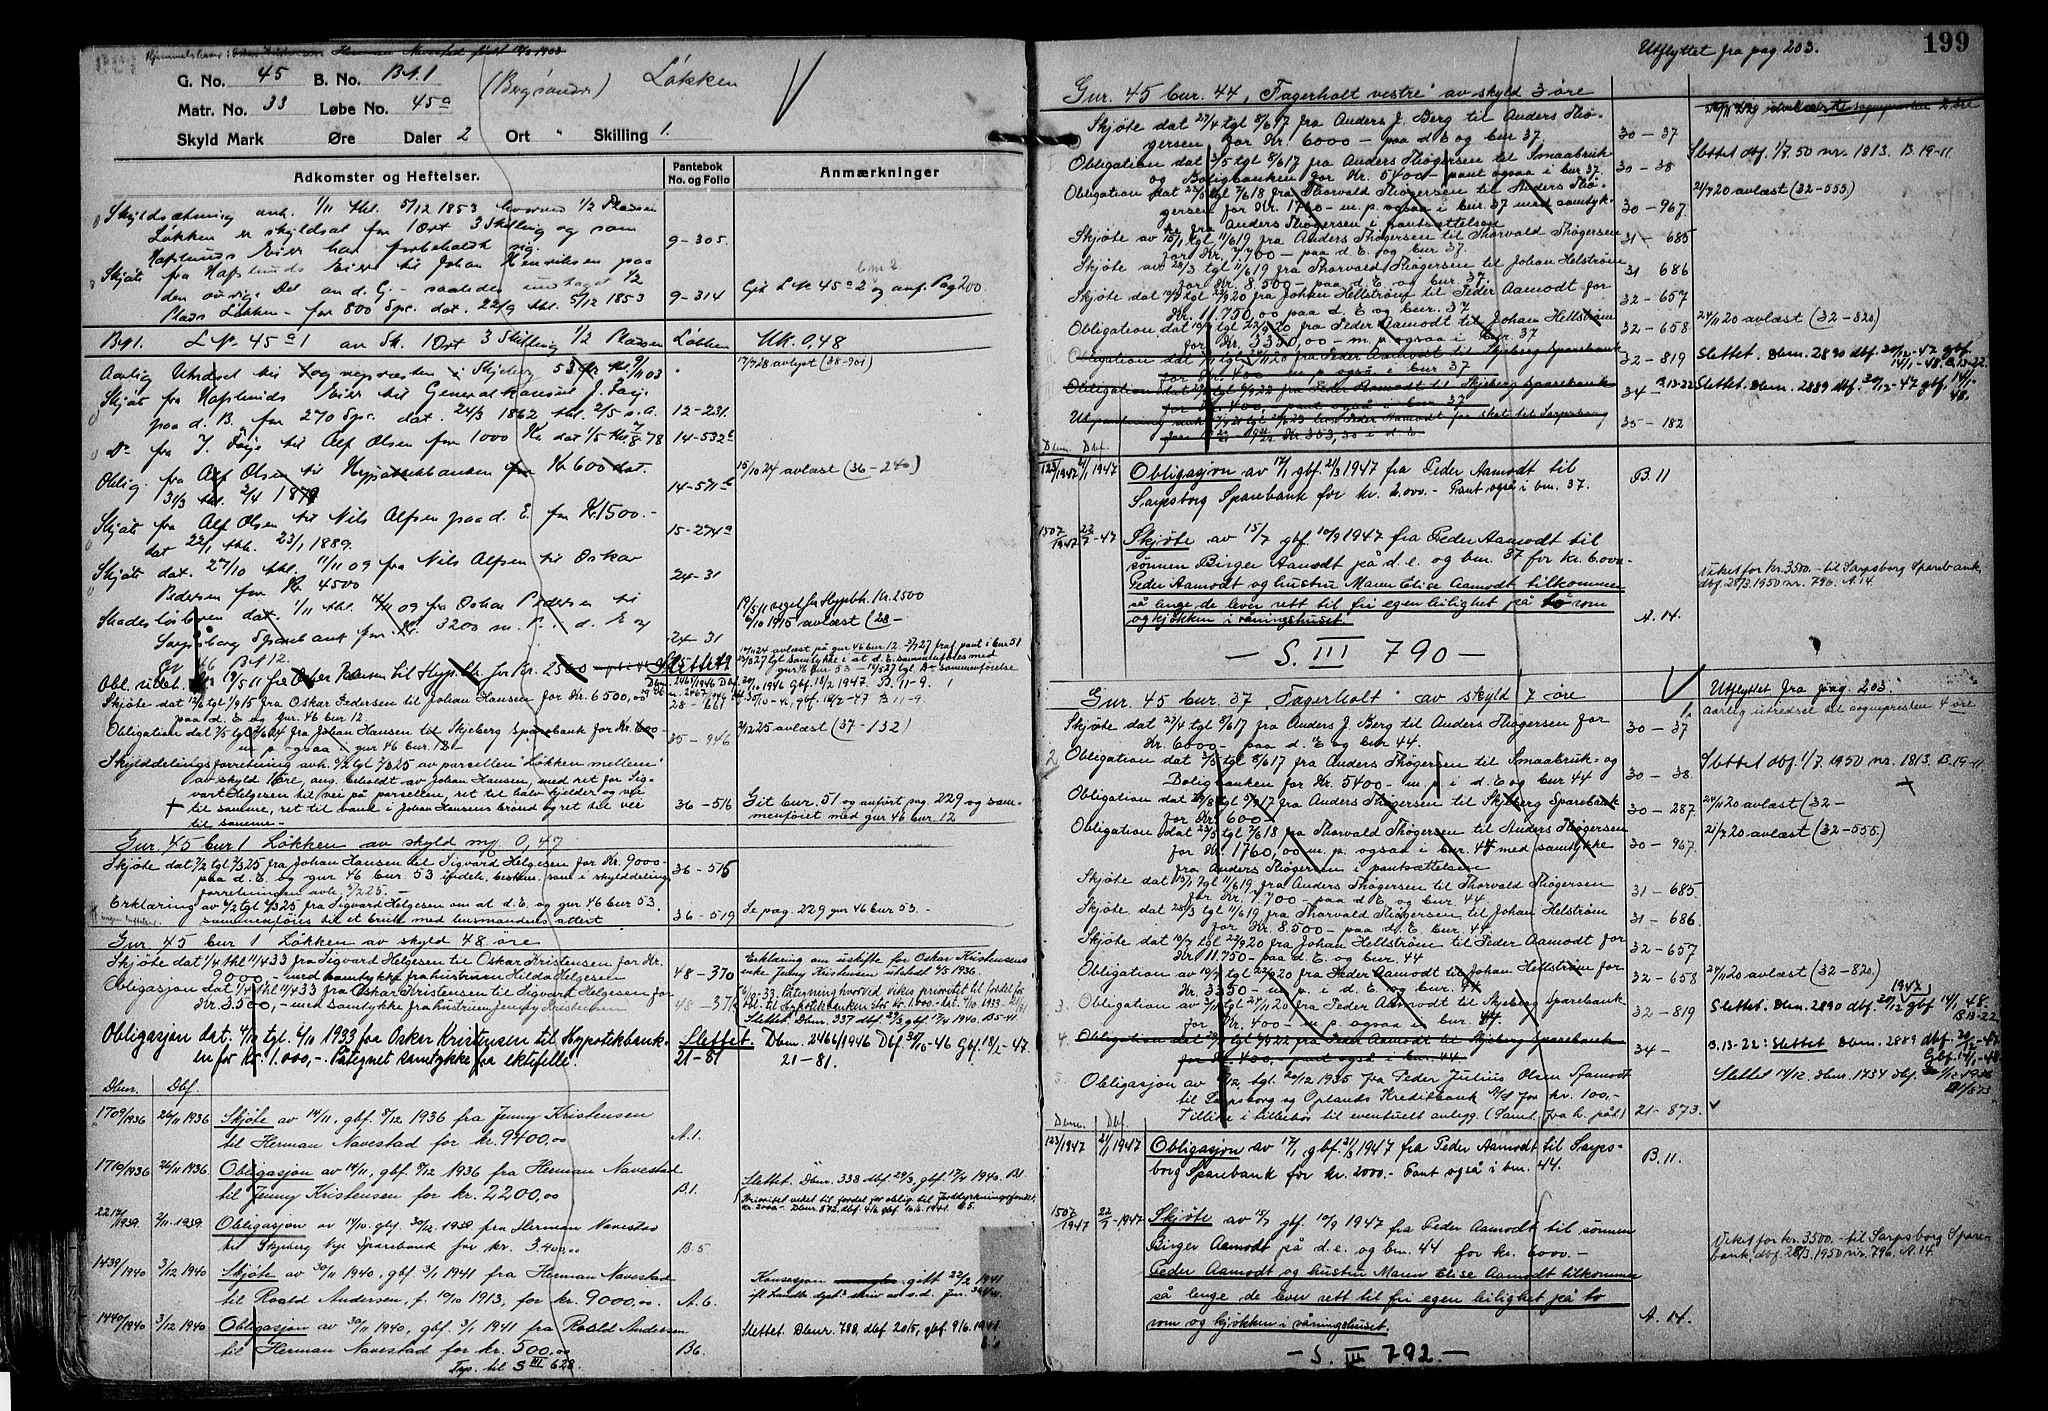 Hjemmelshaver: Herman Navestad født 1903
G. No. 45 B. No. Br. 1 (Bergsundv) Løkken
Matr. No. 33 Løbe No. 45a
Skyld Mark Øre Daler 2 Ort " Skilling 1.
Adkomster og Heftelser. Pantebok No. og Folio Anmærkninger
Skyldsætning anh. 1/11 thl. 5/12 1853 hvorved 1/2 Pladsen
Løkken er skyldsat for 1 Ort 3 Skilling og som
Hafslunds Eier har forbeholdt sig. 9-305.
Skjøte fra Hafslunds Eier til Johan Henriksen paa
den øvrige Del an d. G. - saaledes undtaget 1/2
Plads Løkken - for 800 Spc. dat. 22/9 thl. 5/12 1853 9-314 Git L No 45a2 og anf. Pag 200.
Br 1. L No 45a1 av Sk. 1 Ort 3 Skilling 1/2 Pladsen Løkken Mk. 0,48
Aarlig Utredsel til Sognepræsten i Skjeberg 53 Kr thl. 9/11 03 17/7 28 avlyst (38-901)
Skjøte fra Hafslunds Eier til Generalkonsul J. Faye
paa d. B. for 270 Spc. dat. 24/3 1862 thl. 2/5 s.A. 12-231.
Do fra J. Faye til Alf Olsen for 1000 Kr dat 1/5 thl. 7/8 78 14-532b
Oblig. fra Alf Olsen til Hypotekbanken for Kr 600 dat. 15/10 24 avlæst (36-240)
31/3 thl. 2/4 1879 14-571b
Skjøte fra Alf Olsen til Nils Alfsen paa d. E. for Kr. 1500.-
dat 22/1 thl. 23/1 1889. 15-274a
Skjøte dat. 27/10 thl. 11/11 09 fra Nils Alfsen til Oskar
Pedersen for Kr 4500 24-31
Skadesløsbrev dat. 1/11 thl. 11/11 09 fra Oskar Pedersen til 19/5 11 veget for Hypbk. Kr. 2500
Sarpsborg Sparebank for Kr. 3200 m. P. i d. E og 24-31 6/10 1915 avlæst (28-
G No 46 Br 12.
Obl. utdet. 13/5 11 fra Oskar Pedersen til Hyp. bk. for Kr. 2500 Slettet
Skjøte dat 12/6 tgl 1/9 15 fra Oskar Pedersen til Johan Hansen for Kr. 6500,00 28-661
paa d. E og gur. 46 bur 12.
Obligation dat 7/5 tgl 6/6 24 fra Johan Hansen til Skjeberg Sparebank for Kr. 600- 35-946 2/12 25 avlæst (37-132)
m p ogsaa i gur 46 bur. 12.
Skylddelingsforretning avh. 3/2 tgl 2/3 25 av parcellen "Løkken mellem"
av skyld 1 øre, ang. beholdt av Johan Hansen, med ret for Sig-
vart Helgesen til vei på parcellen, ret til halv kjelder og vei
til samme, ret til vand i Johan Hansens brønd og ret til vei 36-516 Git bur. 51 og anført pag. 229 og sam-
til samme- menføiet med gur 46 bur 12
Gur. 45 bur 1 Løkken av skyld mk 0,47
Skjøte dat 3/2 tgl 2/3 25 fra Johan Hansen til Sigvard Helgesen for Kr. 9000- 36-515
paa d. E og gur 46 bur 53 ifødele. bestem. som i skylddeling
forretningen avh. 3/2 25.-
Erklæring av 4/2 tgl 4/3 25 fra Sigvard Helgesen om at d. E og gur 46 bur 53. 36-519 Se pag. 229 gur 46 bur 53.-
sammenføies til et bruk med herredsmandens attest
Gur. 45 bur 1 Løkken av skyld 48 øre
Skjøte dat 1/4 thl 11/4 33 fra Sigvard Helgesen til Oskar Kristensen for Kr. Erklæring om uskifte for Oskar Kristensens
9000.- med samtykke fra hustruen Hilda Helgesen 48-370 enke Jenny Kristensen utstedt 4/3 1936.
Obligasjon dat 1/4 thl 11/4 33 fra Oskar Kristensen til Sigvart Helgesen for
Kr. 3.500,- med samtykke fra hustruen Jenny Kristensen 48-371
Slettet Dbnr. 337 dbf 29/3 gbf 17/4 1940. B5-41.
Obligasjon dat. 4/10 tgl. 6/10 1933 fra Oskar Kristensen til Hypotekbank- Slettet. Dbnr. 2466/1946 Dbf. 30/10-46 Gbf. 18/2-47.
en for kr. 1.000,-. Påtegnet samtykke fra ektefelle. 21-81 21-81.
Dbnr. Dbf.
1709/1936 26/11 1936 Skjøte av 14/11, gbf. 8/12 1936 fra Jenny Kristensen
til Herman Navestad for kr. 9400,00 A.1.
1710/1936 26/11 1936 Obligasjon av 14/11, gbf 8/12 1936 fra Herman Navestad Slettet Dbnr. 338 dbf 29/3, gbf 17/4 1940. B1.
til Jenny Kristensen for kr. 2200,00 B.1. Prioritet veket til fordel for oblig. til Jorddyrkningsfondet,
kr. 2000.- Dbnr. 872, dbf 4/6 gbf 10/6 1941. B5.
2217/1939. 2/11-1939. Obligasjon av 14/10. gbf. 30/12. 1939. fra Herman Navestad
til Skjeberg Nye Sparebank for kr. 3.400,00 B.5
1439/1940 3/12 1940 Skjøte av 30/11 1940, gbf. 3/1 1941 fra Herman Navestad Konsesjon mangler gitt 22/2 1941
til Roald Andersen, f. 10/10 1913, for kr. 9000,00. A.6.
1440/1940 3/12 1940 Obligasjon av 30/11 1940, gbf. 3/1 1941 fra Roald Andersen Slettet. Dbnr. 788, dbf 20/5, gbf. 9/6. 1941
til Herman Navestad for kr. 500,00 B6.
Trp. til S III 628.
199
Utflyttet fra pag 203.
Gur. 45 bur. 44, "Fagerholt vestre" av skyld 3 øre
Skjøte dat 23/4 tgl 8/6 17 fra Anders J. Berg til Anders Thø-
gersen for Kr. 6000- paa d E og bur 37. 30-37
Obligation dat 3/5 tgl 8/6 17 fra Anders Thøgersen til Smaabruk- Slettet dbf. 1/7. 50 nr. 1813. B. 19-11.
og Boligbanken for Kr. 5400- pant ogsaa i bur 37. 30-38
Obligation dat 22/5 tgl 7/6 18 fra Thorvald Thøgersen til Anders Thø- 21/7 20 avlæst (32-555)
gersen for Kr. 1760- m. p. ogsaa i bur 37 med samtyk- 30-967
ke fra Anders Thøgersen i pantsættelsen
Skjøte av 15/1 tgl 11/6 19 fra Anders Thøgersen til Thorvald Thøgersen 31-685
for Kr. 7.700- paa d. E. og bur 37.
Skjøte av 28/3 tgl 11/6 19 fra Thorvald Thøgersen til Johan Helstrøm 31 686
for Kr. 8.500- paa d. E. og bur 37.
Skjøte dat 10/7 tgl 22/9 20 fra Johan Hellstrøm til Peder Aamodt for 32-657
Kr. 11.750,00 paa d E og bur 37
Obligation dat 10/7 tgl 22/9 20 fra Peder Aamodt til Johan Hellstrøm 32-658 24/11 20 avlæst (32-820)
for Kr. 3350,00- m p. ogsaa i bur 37
Obligation dat 3/11 tgl 24/11 20 fra Peder Aamodt til Skjeberg Sparebank 32-819 Slettet. Dbnr. 2890 dbf. 20/12-47 gbf.
for Kr. 400- m p. ogsaa i bur. 37 14/1-48. B.13-22.
Obligation dat 29/7 tgl 6/9 22 fra Peder Aamodt til Skjeberg Sparebank 34- B.13-22 Slettet. Dbnr. 2889 dbf. 20/12-47 gbf. 14/1-48.
for Kr. 400,- pant også i bur 37
Utpantning tgl 21/6 23 hos Peder Aamodt for skat til Sarpsborg 35-182
for Kr. 353,30 i d. E
Dbnr. Dbf.
123/1947 21/1 1947 Obligasjon av 17/1 gbf. 21/3 1947 fra Peder Aamodt til B.11
Sarpsborg Sparebank for kr. 2.000.- Pant også i bnr. 37.
1507/1947 22/7-47 Skjøte av 15/7 gbf. 10/9 1947 fra Peder Aamodt til
sønnen Birger Aamodt på d. e. og bnr. 37 for kr. 6.000.- Veket for kr. 3500.- til Sarpsborg Sparebank,
Peder Aamodt og hustru Maren Elise Aamodt tilkommer dbf. 28/3. 1950 nr. 796. A.14.
så lenge de lever rett til fri egen leilighet på to rom
og kjøkken i våningshuset. A.14.
- S. III 790 -
Gur. 45 bur. 37 "Fagerholt" av skyld 7 øre Utflyttet fra pag. 203.
Aarlig utredsel til sognepresten 4 øre
Skjøte dat 23/4 tgl 8/6 17 fra Anders J. Berg til Anders Thøgersen for 30-37
Kr. 6000- paa d. E og bur 44.
Obligation dat 3/5 tgl 8/6 17 fra Anders Thøgersen til Smaabruk- og Slettet dbf. 1/7. 1950 nr. 1813. B.19-11
Boligbanken for Kr. 5400- m. p i d. E og bur 44 30-38.
Obligation dat 29/8 tgl 5/9 17 fra Anders Thøgersen til Skjeberg Sparebank 30-287 24/11 20 avlæst (32-
for Kr 600-
Obligation dat 22/5 tgl 7/6 18 fra Thorvald Thøgersen til Anders Thøgersen 21/7 20 avlæst (32-555.)
for Kr. 1760,00 m. p. ogsaa i bur. 44 med samtykke 30-967
fra Anders Thøgersen i pantsættelsen
Skjøte dat 15/1 tgl 11/6 19 fra Anders Thøgersen til Thorvald Thøgersen 31-685
for Kr. 7.700- paa d. E og bur. 44.
Skjøte dat 28/3 tgl 11/6 19 fra Thorvald Thøgersen til Johan Helstrøm 31-686.
for Kr. 8500- paa d. E og bur. 44
Skjøte dat 10/7 tgl 22/9 20 fra Johan Hellstrøm til Peder Aamodt for 32-657
Kr 11.750- paa d. E og bur. 44
Obligation av 10/7 tgl 22/9 20 fra Peder Aamodt til Johan Hellstrøm for 32-658 24/11 20 avlæst (32-820.)
Kr. 3350- m. p. i d. E og bur. 44
3. Obligation av 3/11 tgl 24/11 20 fra Peder Aamodt til Skjeberg Sparebank 32-819 Slettet. Dbnr. 2890 dbf. 20/12 1947 gbf. 14/1-48.
for Kr. 400- m p. ogsaa i bur. 44. B.13-22
4. Obligation dat 29/7 tgl 6/9 22 fra Peder Aamodt til Skjeberg Sparebank 34- B.13-22: Slettet Dbnr. 2889 dbf. 20/12-47
for Kr. 400,- pant også i bur 44 Gbf. 14/1-48.
5. Obligasjon av 9/12 tgl. 20/12 1935 fra Peder Julius Olsen Aamodt Slettet 14/12. dbnr. 1754 dbf.
til Sarpsborg og Oplands Kreditbank A/S for kr. 100,- 21-873.
Tillike i tilbehør til eventuelt anlegg. (Samt. fra h. påt.)
Dbnr. Dbf.
123/1947 21/1 1947 Obligasjon av 17/1 gbf. 21/3 1947 fra Peder Aamodt til Sarps-
borg Sparebank for kr. 2000.- Pant også i bnr. 44. B.11.
1507/1947 22/7-1947 Skjøte av 15/7 gbf. 10/9 1947 fra Peder Aamodt til sønnen
Birger Aamodt på d. e. og bnr. 44 for kr. 6000.- Veket for kr. 3500.- til Sarpsborg Spare-
Peder Aamodt og hustru Maren Elise Aamodt tilkommer bank dbf. 28/3. 1950 nr. 796. A.14.
så lenge de lever rett til fri egen leilighet på to
rom og kjøkken i våningshuset. A.14.
- S. III 792. -